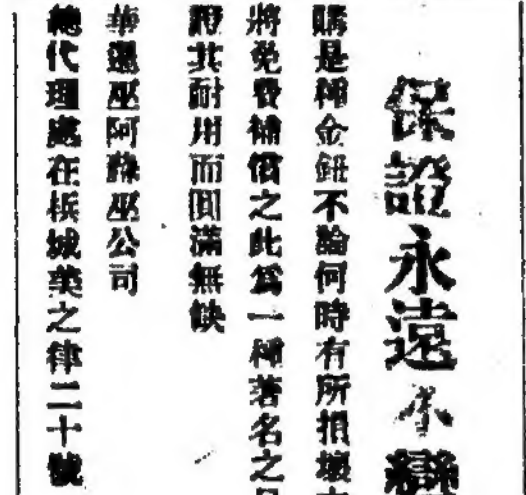 保證永遠不變
購是種金鈕不論何時有所損壞
將免費補償之此為一種著名之
證其耐用而圓滿無缺
華還巫阿蘇巫公司
總代理處在梹城美之律二十號